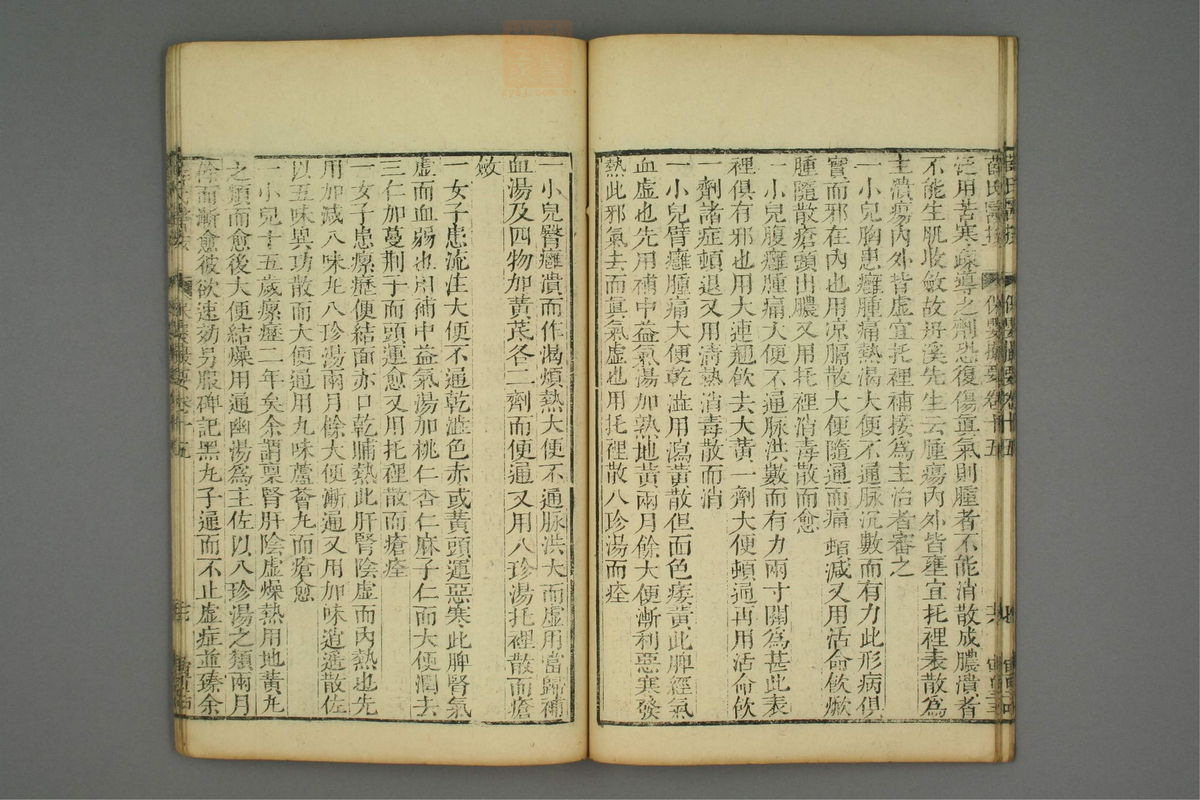 泛用苦寒疎導之劑恐復傷眞氣則腫者不能消散成膿潰者
不能生肌收斂故丹溪先生云腫瘍內外皆壅宜托裡表散爲
主潰瘍內外皆虛宜托裡補接爲主治者審之
一小兒胸患癰腫痛熱渴大便不通脉沉數而有力此形病俱
實而邪在內也用凉膈散大便隨通而痛䐜減又用活命飲焮
腫隨散瘡頭出膿又用托裡消毒散而愈
一小兒腹癰腫痛大便不通脉洪數而有力兩寸關爲甚此表
裡俱有邪也用大連翹飲去大黃一劑大便頓通再用活命飲
一劑諸症頓退又用清熱消毒散而消
一小兒臂癰腫痛大便乾澁用瀉黃散但面色痿黃此脾經氣
血虛也先用補中益氣湯加熟地黃兩月餘大便漸利惡寒發
熱此邪氣去而眞氣虛也用托裡散八珍湯而痊
一小兒臀癰潰而作渴煩熱大便不通脉洪大而虛用當歸補
血湯及四物加黃茋各二劑而便通又用八珍湯托裡散而瘡
斂
一女子患流注大便不通乾澁色赤或黃頭運惡寒此脾腎氣
虛而血弱也用補中益氣湯加桃仁杏仁麻子仁而大便潤去
三仁加蔓荆子而頭運愈又用托裡散而瘡痊
一女子患瘰癧便結面赤口乾晡熱此肝腎陰虛而內熱也先
用加減八味丸八珍湯兩月餘大便漸通又用加味逍遥散佐
以五味異功散而大便通用九味蘆薈丸而瘡愈
一小兒十五歲瘰癧二年矣余謂稟腎肝陰虛燥熱用地黃丸
之類而愈後大便結燥用通幽湯爲主佐以八珍湯之類兩月
餘而漸愈彼欲速効另服碑記黑丸子通而不止虛症並臻余
薛氏醫按
保嬰撮要卷十五